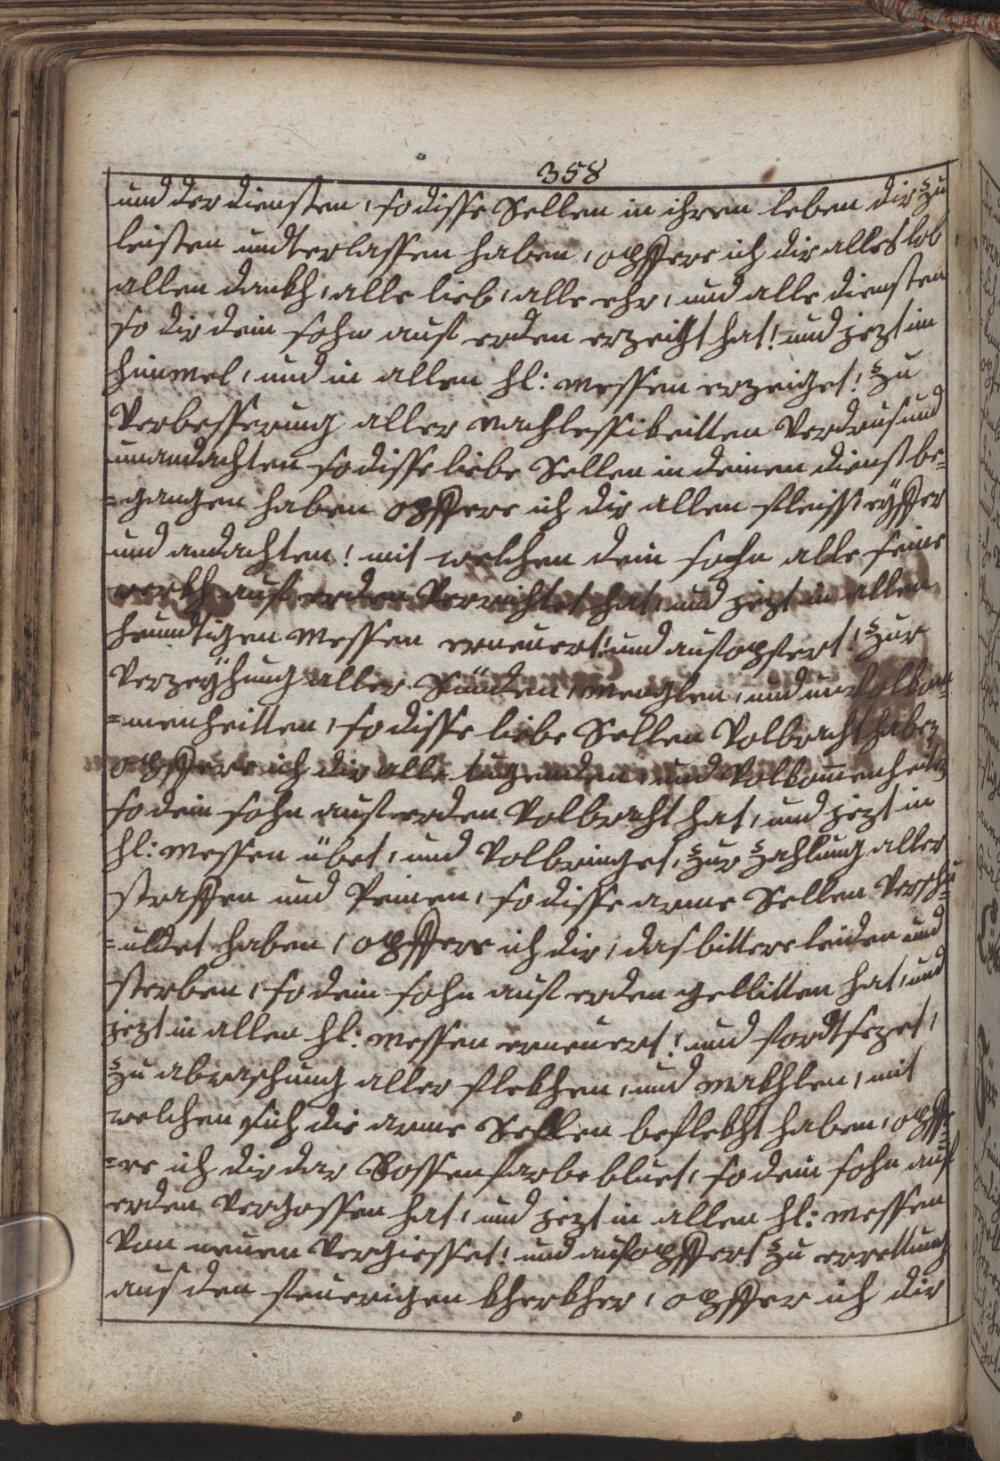 358
und der diensten, so disse Sellen in ihren leben dir zu
leisten undterlassen haben, opffere ich dir alles lob
allen dankh, alle lieb, alle ehr, und alle diensten
so dir dein sohn auf erden erzeigt hat! und jezt im
himmel, und in allen hl: messen erzeiget! zu
Verbesserung aller nachlessikeitten Verdrus und
unandachten so disse liebe Sellen in deinem dienst be-
-gangen haben opffere ich dir allen fleiss eyffer
und andachten! mit welchen dein sohn alle seine
werkh auf erden Verrichtet hat, und jezt in allen
heundtigen messen erneuert! und aufopfert! zur
Verzeyhung aller Sünden, menglen, und unvolkom-
-menheitten, so disse liebe Sellen Volbracht haben,
opffere ich dir alle tugenden, und Volkommenheiten
so dein sohn auf erden Volbracht hat, und jezt in
hl: messen übet, und Volbringet, zur zahlung aller
straffen und Peinen, so disse arme Sellen Verschu-
-uldet haben, opffere ich dir, das bittere leiden und
sterben, so dein sohn auf erden gelitten hat, und
jezt in allen hl: messen erneuert! und fordtsezet,
zu abwaschung aller flekhen, und makhlen, mit
welchen sich die arme Sellen beflekht haben, opffe-
-re ich dir das Rossenfarbe bluet, so dein sohn auf
erden Vergossen hat, und jezt in allen hl: messen
Von neuen Vergiesset! und aufopffert zu errettung
aus den feuerigen kherkher, opffer ich dir